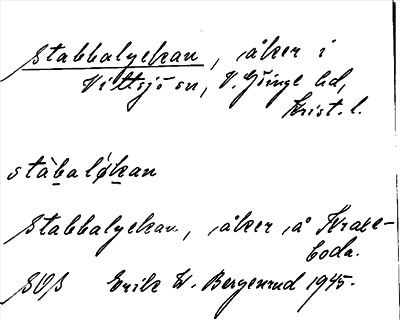 Stabbalyckan, åker i
Vittsjö sn, V. Göinge hd,
Krist. l.
stàbalỳkan
Stabbalyckan, åker å Krake-
boda.
SOS Erik W. Bergenrud 1945.